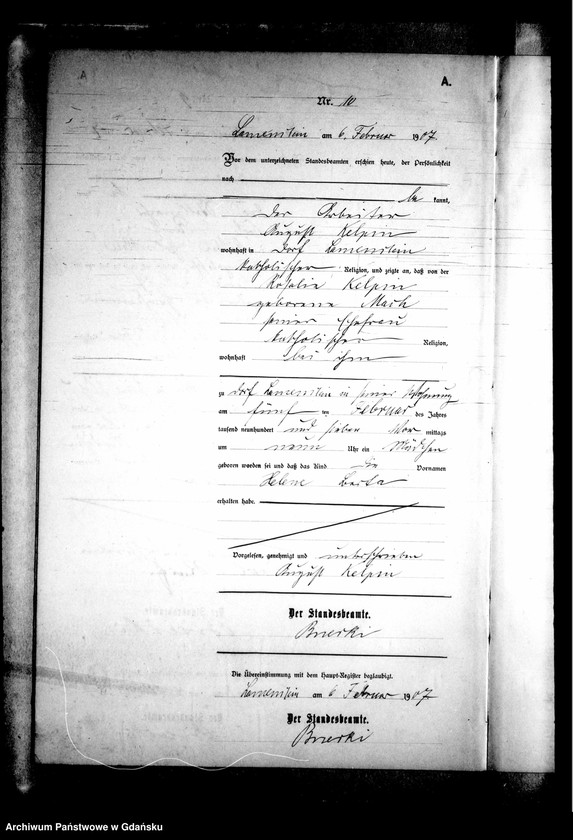 A.
Nr. 10
Lamenstein am 6. Februar 1907.
Vor dem unterzeichneten Standesbeamten erschien heute, der Persönlichkeit
nach
be kannt,
der Arbeiter
August Kelpin
wohnhaft in Dorf Lamenstein
katholischer Religion, und zeigte an, daß von der
Rosalie Kelpin
geborene Mach
seiner Ehefrau
katholischer Religion,
wohnhaft bei ihm
zu Dorf Lamenstein in seiner Wohnung
am fünf ten Februar des Jahres
tausend neunhundert und sieben Vor mittags
um neun Uhr ein Mädchen
geboren worden sei und daß das Kind die Vornamen
Helene Berta
erhalten habe.
Vorgelesen, genehmigt und unterschrieben
August Kelpin
Der Standesbeamte.
Die Übereinstimmung mit dem Haupt-Register beglaubigt.
Lamenstein am 6 Februar 1907
Der Standesbeamte.
Archiwum Państwowe w Gdańsku